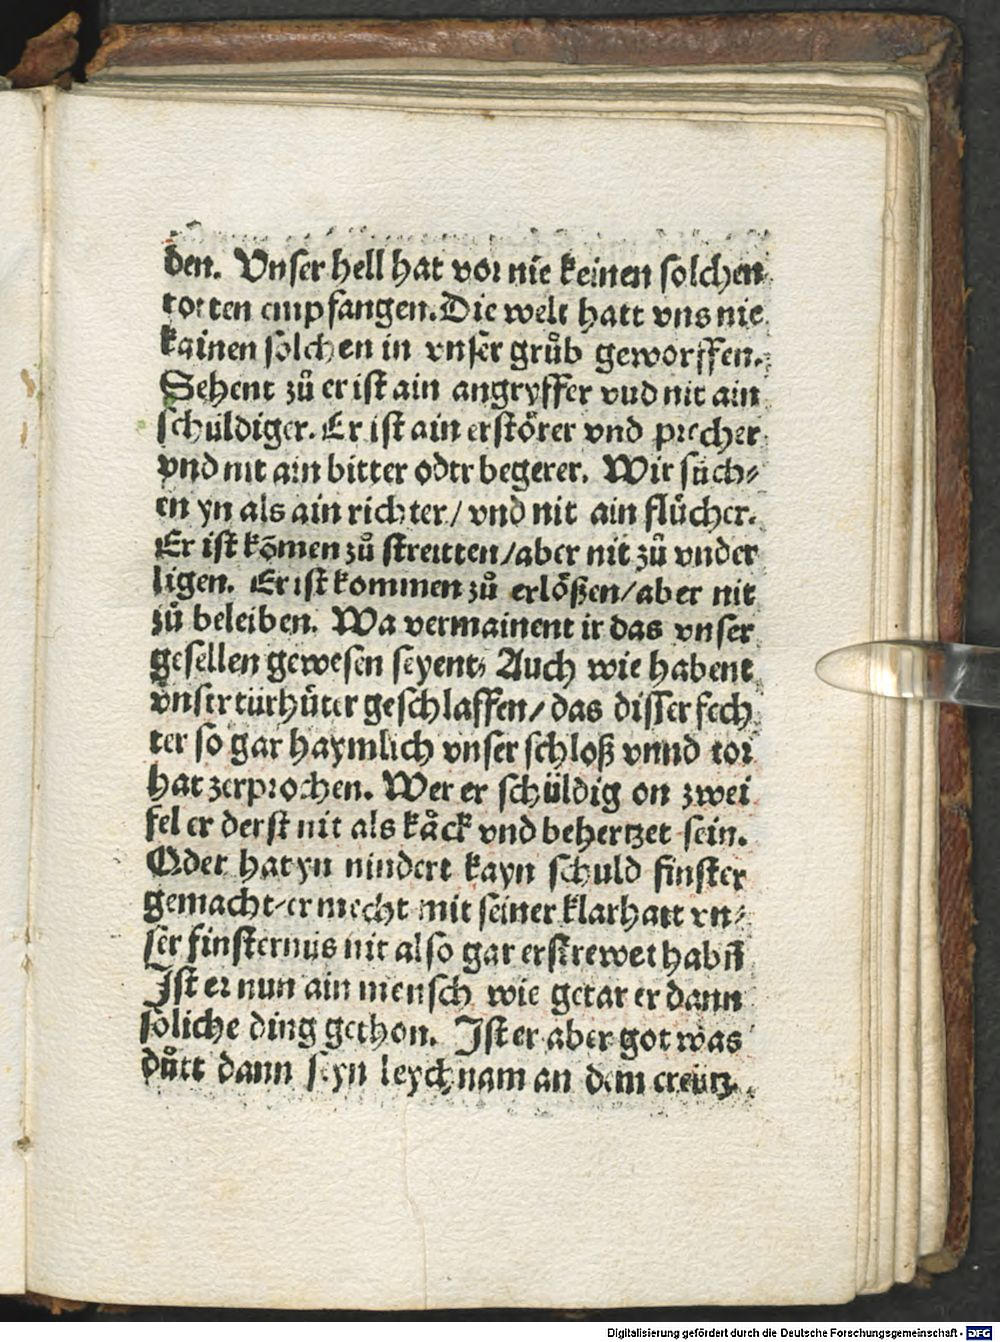 den. Vnser hell hat vor nie keinen solchen
totten empfangen. Die welt hatt vns nie
kainen solchen in vnser grůb geworffen.
Sehent zů er ist ain angryffer vnd nit ain
schuldiger. Er ist ain erstörer vnd precher
vnd nit ain bitter odtr begerer. Wir sůch⸗
en yn als ain richter / vnd nit ain flůcher.
Er ist kõmen zů streitten / aber nit zů vnder
ligen. Er ist kommen zů erlößen / aber nit
zů beleiben. Wa vermainent ir das vnser
gesellen gewesen seyent, Auch wie habent
vnser türhüter geschlaffen / das disser fech
ter so gar haymlich vnser schloß vnnd tor
hat zerprochen. Wer er schüldig on zwei
fel er derst nit als kåck vnd behertzet sein.
Oder hat yn nindert kayn schuld finster
gemacht / er mecht mit seiner klarhatt vn⸗
ser finsternus nit also gar erstrewet habñ
Ist er nun ain mensch wie getar er dann
soliche ding gethon. Ist er aber got was
důtt dann seyn leychnam an dem creutz.
Digitalisierung gefördert durch die Deutsche Forschungsgemeinschaft - DFG